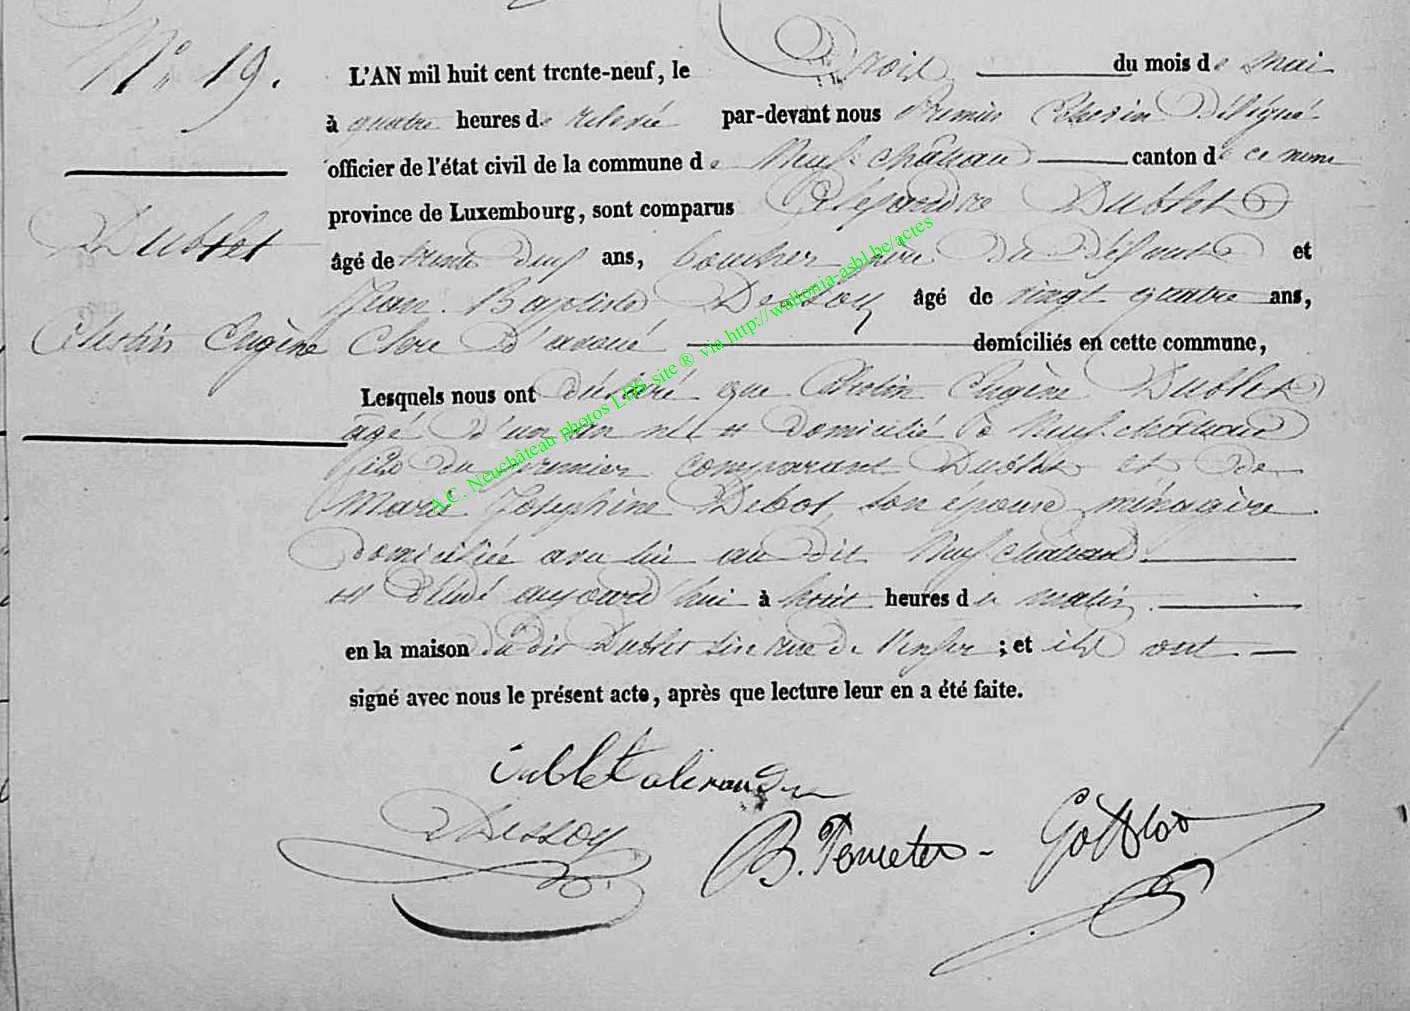 N° 19.
Dublet
Célestin Eugène
L'AN mil huit cent trente-neuf, le trois du mois de mai
à quatre heures de relevée par-devant nous Premier Echevin Délégué
officier de l'état civil de la commune de Neufchâteau canton de ce nom
province de Luxembourg, sont comparus Alexandre Dublet
âgé de trente deux ans, boucher père du défunt et
Jean Baptiste Dessoy âgé de vingt quatre ans,
Clerc d'avoué domiciliés en cette commune,
Lesquels nous ont déclaré que Célestin Eugène Dublet
agé d'un an né et domicilié à Neufchâteau
fils du premier comparant Dublet et de
Marie Josephine Debot, son épouse ménagère
domiciliée avec lui au dit Neufchateau
est décédé aujourd'hui à huit heures du matin
en la maison du dit Dublet sise rue de l'enfer ; et ils ont
signé avec nous le présent acte, après que lecture leur en a été faite.
Dublet alexandre
Dessoy
A.C. Neuchâteau photos LDS site ® via http://wallonia-asbl.be/actes